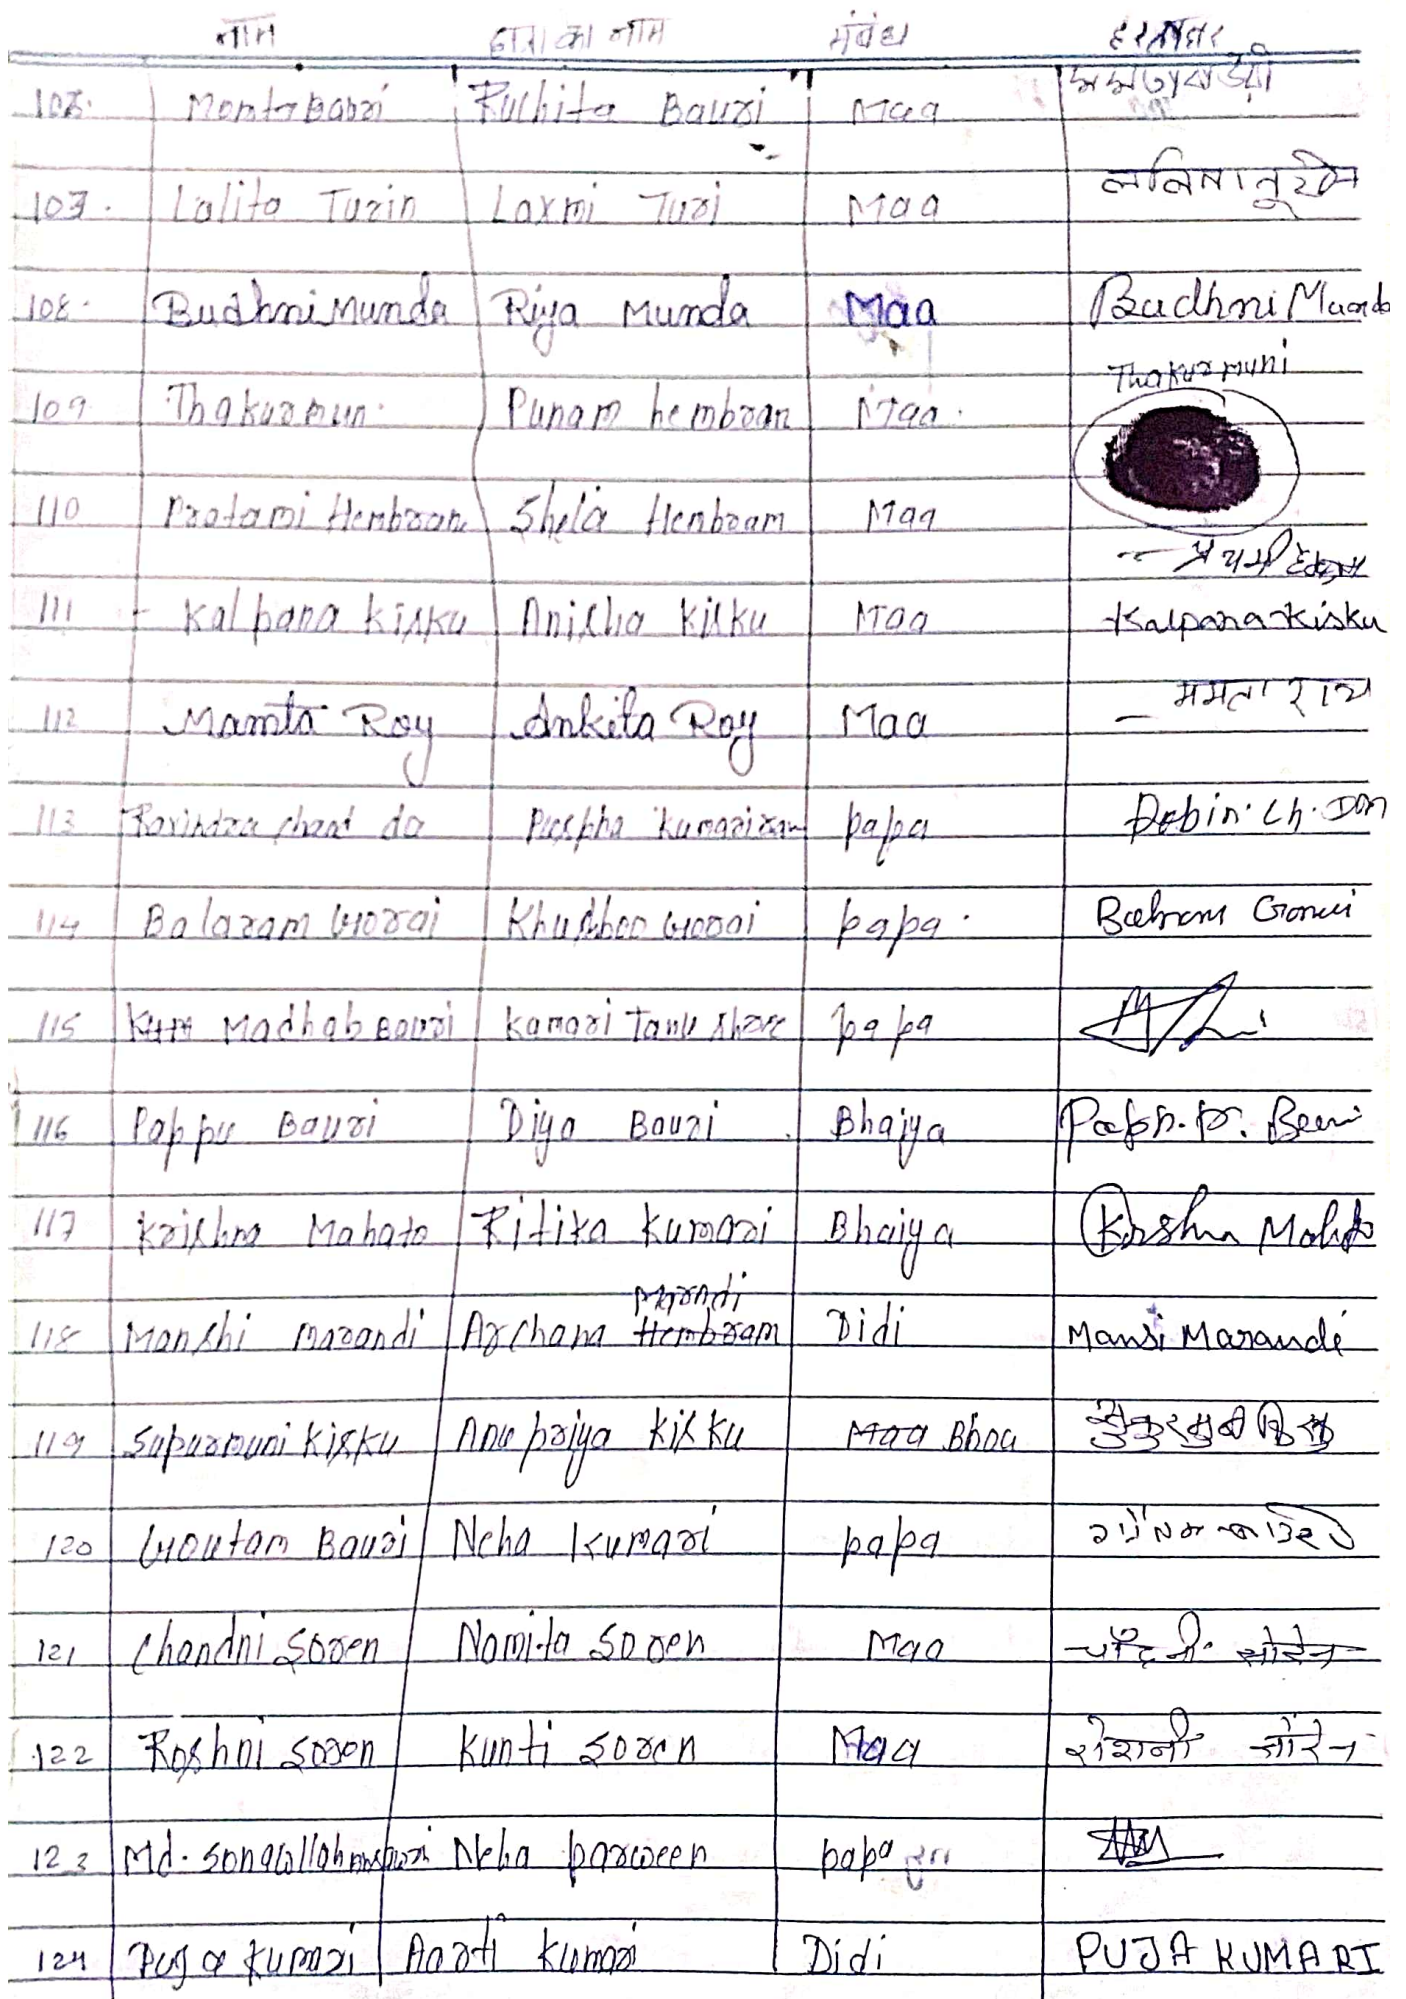 नाम छात्रा का नाम संबंध हस्ताक्षर
Momta Bauri Ruchita Bauri Maa
107. Lalita Turin Laxmi Turi Maa
108. Budhni Munda Riya Munda Maa Budhni Munda
109 Thakurmuni Punam hembram Maa. Thakurmuni
110 Pratami Hembram Shela Hembram Maa
111 - Kalpana Kisku Anisha Kisku Maa Kalpana Kisku
112 Mamta Roy Ankita Roy Maa ममता राय
113 Ravindra Puspha Kumari papa
114 Balaram Gorai Khushboo Gorai papa. Gorai
115 Madhab Bauri Kumari Tanu papa
116 Pappu Bauri Diya Bauri Bhaiya
117 Krishna Mahato Ritika Kumari Bhaiya Krishna Mahato
Marandi
118 Manshi marandi Archana Hembram Didi Mansi Marandi
119 Supurmuni Kisku Anu priya Kisku Maa
120 Goutam Bauri Neha Kumari papa
121 Chandni Soren Nomita Soren Maa चाँदनी सोरेन
122 Roshni Soren Kunti Soren Maa रोशनी सोरेन
123 Md. Neha parween papa
124 Puja Kumari Aarti Kumari Didi PUJA KUMARI